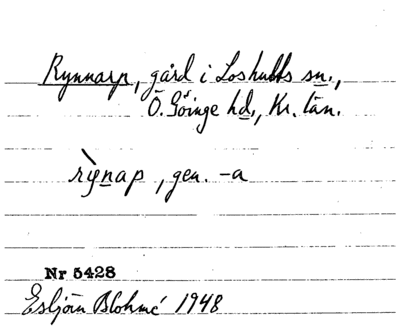 Rynnarp, gård i Loshults sn.,
Ö. Göinge hd., Kr. län.
rỳnap, gen. -a
Nr 5428
Esbjörn Blohmé 1948